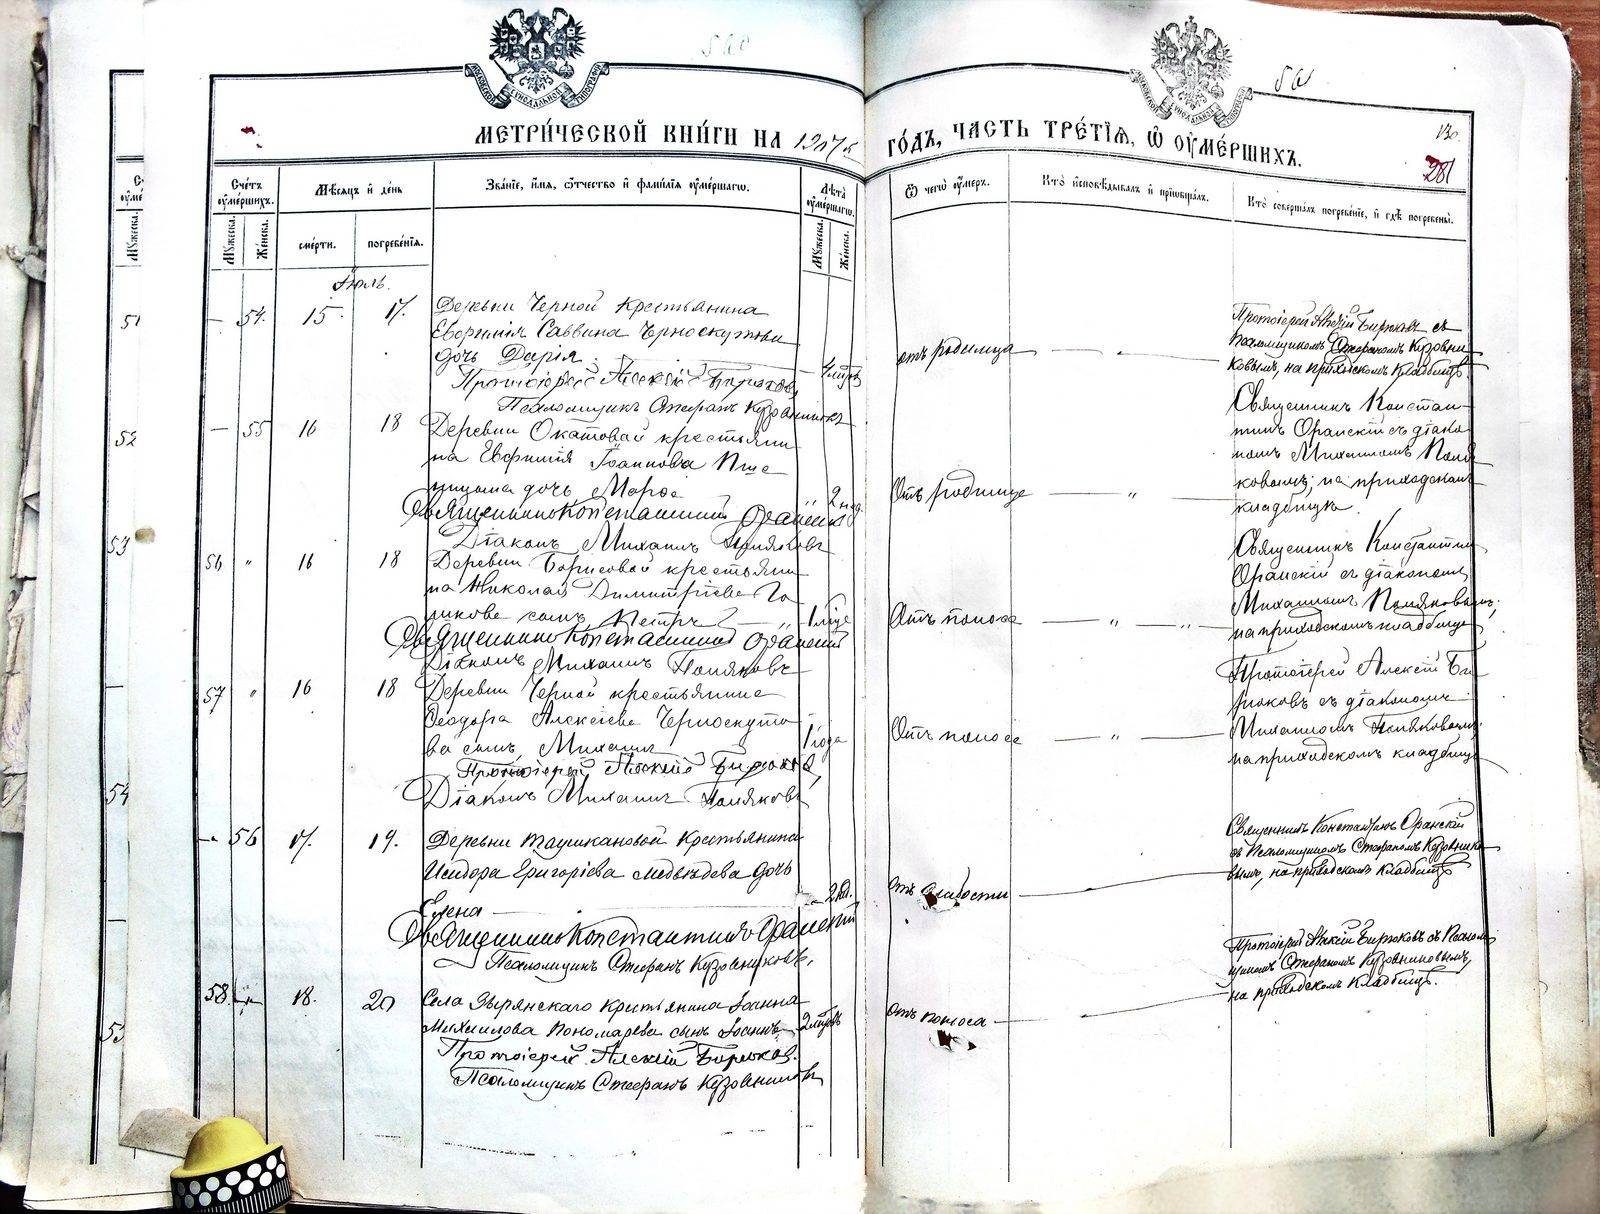 МЕТРИ́ЧЕСКОЙ КНИ́ГИ НА 1917 й
ГО́ДЪ, ЧАСТЬ ТРЕ́ТІѦ, Ѽ ОУМЕ́РШИХЪ.
130
281
Сче́тъ оуме́ршихъ.
Мѣ́сяцъ и҆ де́нь
Зва́нїе, и҆́мѧ, ѻ҆́тчество и҆ фами́лїѧ оуме́ршагѡ.
Лѣ́та оуме́ршагѡ.
Ѿ чегѡ̀ оу́меръ.
Кто̀ и҆сповѣ́дывалъ и҆ прїѡбща́лъ.
Кто̀ соверша́лъ погребе́нїе, и҆ гдѣ̀ погребены̀.
Мꙋ́жеска.
Же́нска.
сме́рти.
погребе́нїѧ.
Мꙋ́жеска.
Же́нска.
Іюль.
— 54. 15. 17.
Деревни Черной Крестьянина
Евфимія Саввина Черноскутова
дочь Дарія.
Протоіерей Алексій Бирюковъ
Псаломщикъ Стефанъ Кузовниковъ
отъ родимца
Протоіерей Алексій Бирюковъ съ
Псаломщикомъ Стефаномъ Кузовни
ковымъ, на приходскомъ Кладбищѣ.
— 55 16 18
Деревни Окатовой крестьяни
на Евфимія Іоаннова Пше
ницына дочь
2 нед.
Священникъ Константинъ Оранскій
Діаконъ Михаилъ Поляковъ
Отъ родимца
Священникъ Констан
тинъ Оранскій съ діако
номъ Михаиломъ Поля
ковымъ, на приходскомъ
кладбищѣ.
56 " 16 18
Деревни Борисовой крестьяни
на Николая Димитріева Го
ликова сынъ Петръ
Священникъ Константинъ Оранскій
Діаконъ Михаилъ Поляковъ
Отъ поноса
Священникъ Константинъ
Оранскій съ діакономъ
Михаиломъ Поляковымъ,
на приходскомъ кладбищѣ
57 " 16 18
Деревни Черной крестьянина
Ѳеодора Алексіева Черноскуто
ва сынъ Михаилъ
1 года
Протоіерей Алексій Бирюковъ
Діаконъ Михаилъ Поляковъ
Отъ поноса
Протоіерей Алексій Би
рюковъ съ діакономъ
Михаиломъ Поляковымъ,
на приходскомъ кладбищѣ
— 56 17. 19.
Деревни Таушкановой Крестьянина
Исидора Григоріева Медвѣдева дочь
Елена
2 нд.
Священникъ Константинъ Оранскій
Псаломщикъ Стефанъ Кузовниковъ.
отъ слабости
Священникъ Константинъ Оранскій
съ Псаломщикомъ Стефаномъ Кузовнико
вымъ, на приходскомъ Кладбищѣ
58. " 18. 20
Села Зырянскаго Крестьянина Іоанна
Михаилова Пономарева сынъ Іоаннъ
Протоіерей Алексій Бирюковъ.
Псаломщикъ Стефанъ Кузовниковъ
отъ поноса
Протоіерей Алексій Бирюковъ съ Псалом
щикомъ Стефаномъ Кузовниковымъ,
на приходскомъ Кладбищѣ.
51
52
53
54